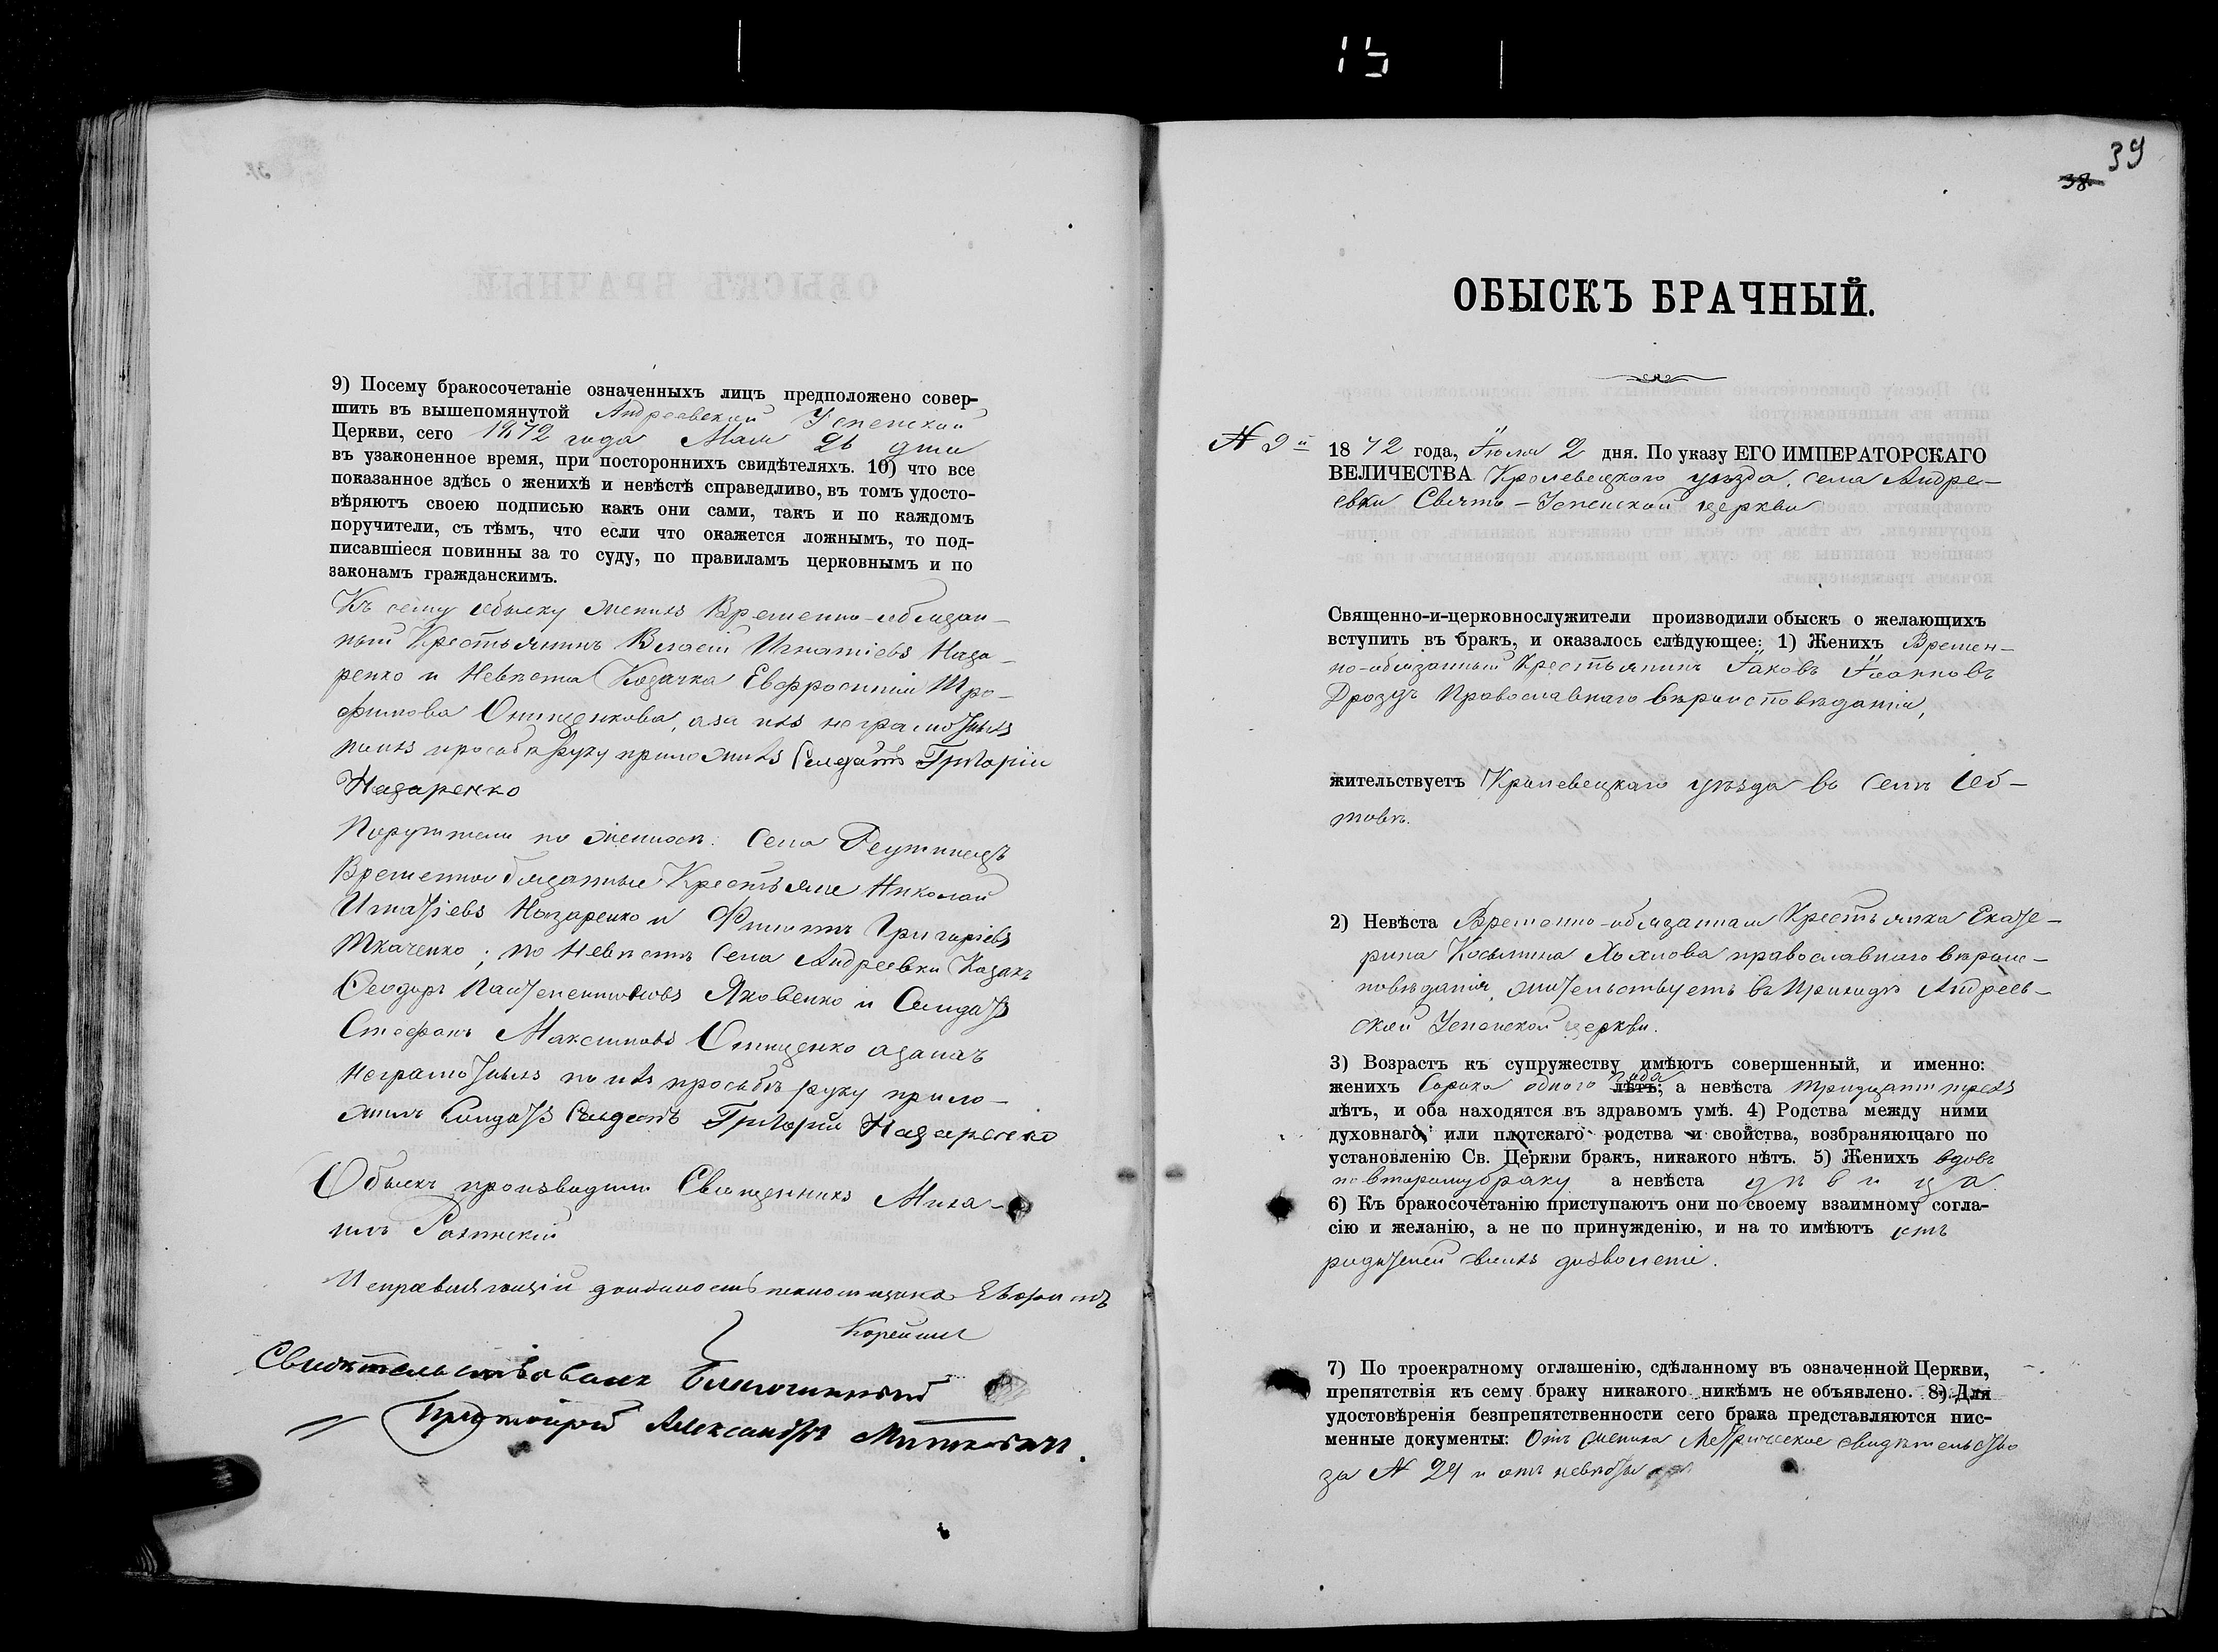 15
9) Посему бракосочетаніе означенныхъ лицъ предположено совер-
шить въ вышепомянутой Андреевской Успенской
Церкви, сего 1872 года Мая 26 дня
въ узаконенное время, при постороннихъ свидѣтеляхъ. 10) что все
показанное здѣсь о женихѣ и невѣстѣ справедливо, въ томъ удосто-
вѣряютъ своею подписью какъ они сами, такъ и по каждомъ
поручители, съ тѣмъ, что если что окажется ложнымъ, то под-
писавшіеся повинны за то суду, по правиламъ церковнымъ и по
законамъ гражданскимъ.
Къ сему обыску женихъ Временно-обязан-
ный Крестьянинъ Власій Игнатіевъ Наза-
ренко и Невѣста Козачка Евфросинія Тро-
фимова Онищенкова, а за ихъ неграмотныхъ
по ихъ просьбѣ руку приложилъ Солдатъ Григорій
Назаренко
Поручители по женихѣ: Села Реутинецъ
Временнообязанные Крестьяне Николай
Игнатіевъ Назаренко и Филиппъ Григоріевъ
Ткаченко; по Невѣстѣ Села Андреевки Козакъ
Ѳеодоръ Яковенко и Солдатъ
Стефанъ Максимовъ Онищенко а за ихъ
неграмотныхъ по ихъ просьбѣ руку прило-
жилъ Солдатъ Григорій Назаренко
Обыскъ производили Священникъ Миха-
илъ
Исправляющій должность псаломщика
Свидѣтельствовалъ Благочинный
Протоіерей Александръ
39
38
ОБЫСКЪ БРАЧНЫЙ.
№ 9й
1872 года, Іюля 2 дня. По указу ЕГО ИМПЕРАТОРСКАГО
ВЕЛИЧЕСТВА Кролевецкаго уѣзда, села Андре-
евки Свято-Успенской церкви
Священно-и-церковнослужители производили обыскъ о желающихъ
вступить въ бракъ, и оказалось слѣдующее: 1) Женихъ Времен-
но-обязанный Крестьянинъ Іаковъ Іоанновъ
Дроздъ Православнаго вѣроисповѣданія,
жительствуетъ Кролевецкаго уѣзда въ селѣ
2) Невѣста Временно-обязанная Крестьянка Екате-
рина Косьмина Хохлова православнаго вѣроис-
повѣданія, жительствуетъ въ Приходѣ Андреев-
ской Успенской церкви.
3) Возрастъ къ супружеству имѣютъ совершенный, и именно:
женихъ Сорока одного года лѣтъ; а невѣста тридцати трехъ
лѣтъ, и оба находятся въ здравомъ умѣ. 4) Родства между ними
духовнаго, или плотскаго родства и свойства, возбраняющаго по
установленію Св. Церкви бракъ, никакого нѣтъ. 5) Женихъ вдовъ
по второму браку а невѣста дѣвица
6) Къ бракосочетанію приступаютъ они по своему взаимному согла-
сію и желанію, а не по принужденію, и на то имѣютъ отъ
родителей своихъ дозволеніе.
7) По троекратному оглашенію, сдѣланному въ означенной Церкви,
препятствія къ сему браку никакого никѣмъ не объявлено. 8) Для
удостовѣренія безпрепятственности сего брака представляются пис-
менные документы: Отъ жениха Метрическое свидѣтельство
за № 24 и отъ невѣсты